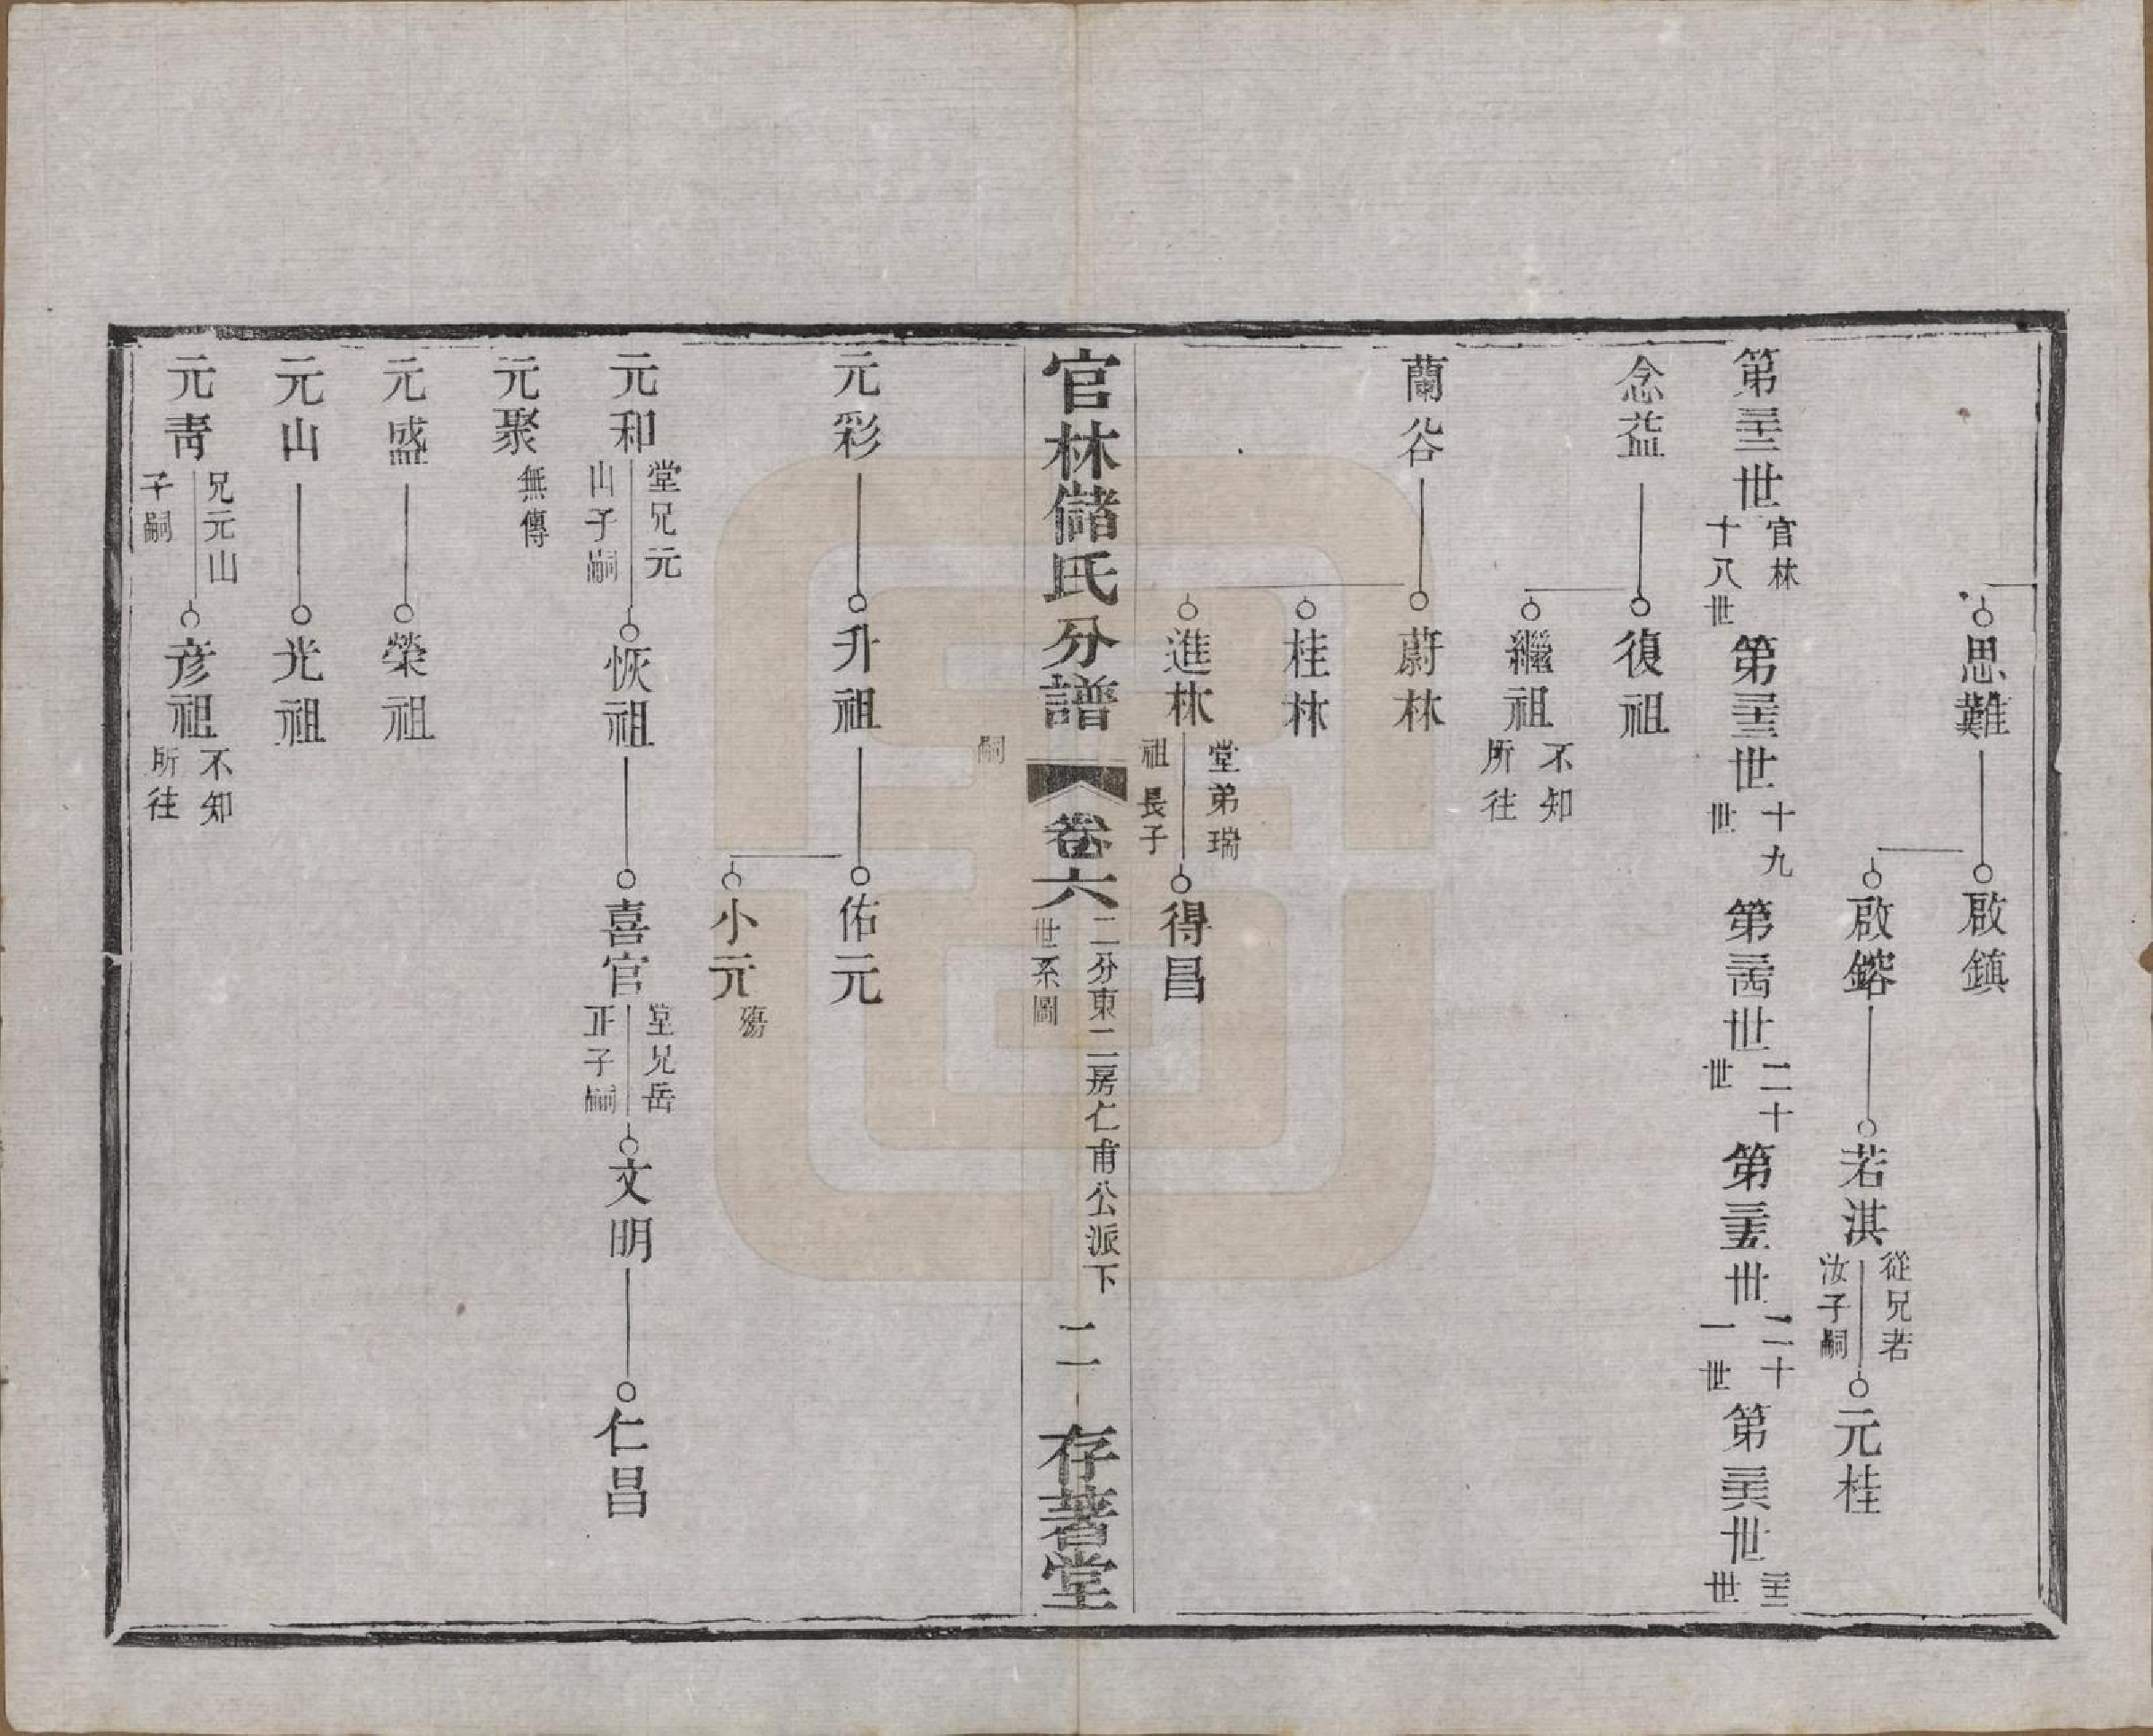 思難 啟鎮
啟鎔 若淇 從兄若汝子嗣 元桂
第三十二世 官林十八世 第三十三世 十九世 第三十四世 二十世 第三十五世 二十一世 第三十六世 二十二世
念益 復祖
繼祖 不知所往
蘭谷 蔚林
桂林
進林 堂弟瑞祖長子嗣 得昌
官林儲氏分譜 卷六 二分東二房仁甫公派下世系圖 二 存著堂
元彩 升祖 佑元
小元 殤
元和 堂兄元山子嗣 恢祖 喜官 堂兄岳正子嗣 文明 仁昌
元聚 無傳
元盛 榮祖
元山 光祖
元青 兄元山子嗣 彦祖 不知所往